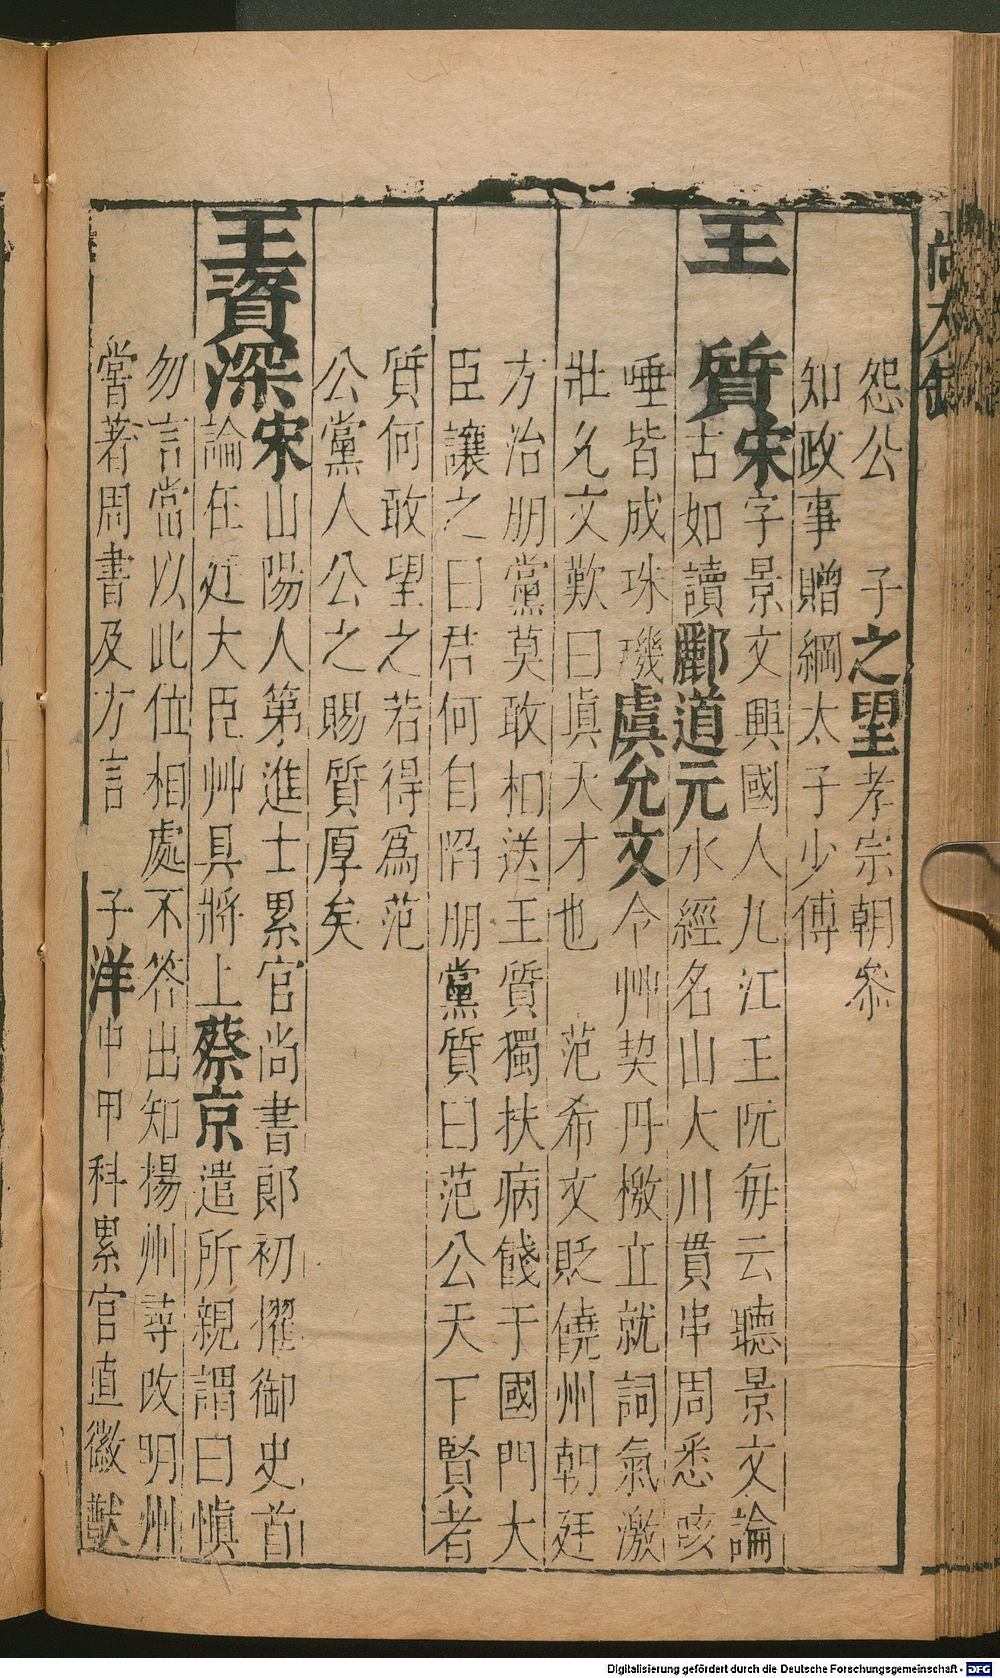 怨公　子之望孝宗朝叅
知政事贈綱太子少傅
王　質宋字景文興國人九江王阮每云聽景文論
古如讀酈道元水經名山大川貫串周悉咳
唾皆成珠璣虞允文令艸契丹檄立就詞氣激
壯允文歎曰眞天才也　范希文貶饒州朝廷
方治朋黨莫敢相送王質獨扶病餞于國門大
臣讓之曰君何自陷朋黨質曰范公天下賢者
質何敢望之若得爲范
公黨人公之賜質厚矣
王資深宋山陽人第進士累官尚書郞初擢御史首
論在廷大臣艸具將上蔡京遣所親謂曰愼
勿言當以此位相處不答出知揚州尋改明州
嘗著周書及方言　子洋中甲科累官直徽猷
Digitalisierung gefördert durch die Deutsche Forschungsgemeinschaft - DFG